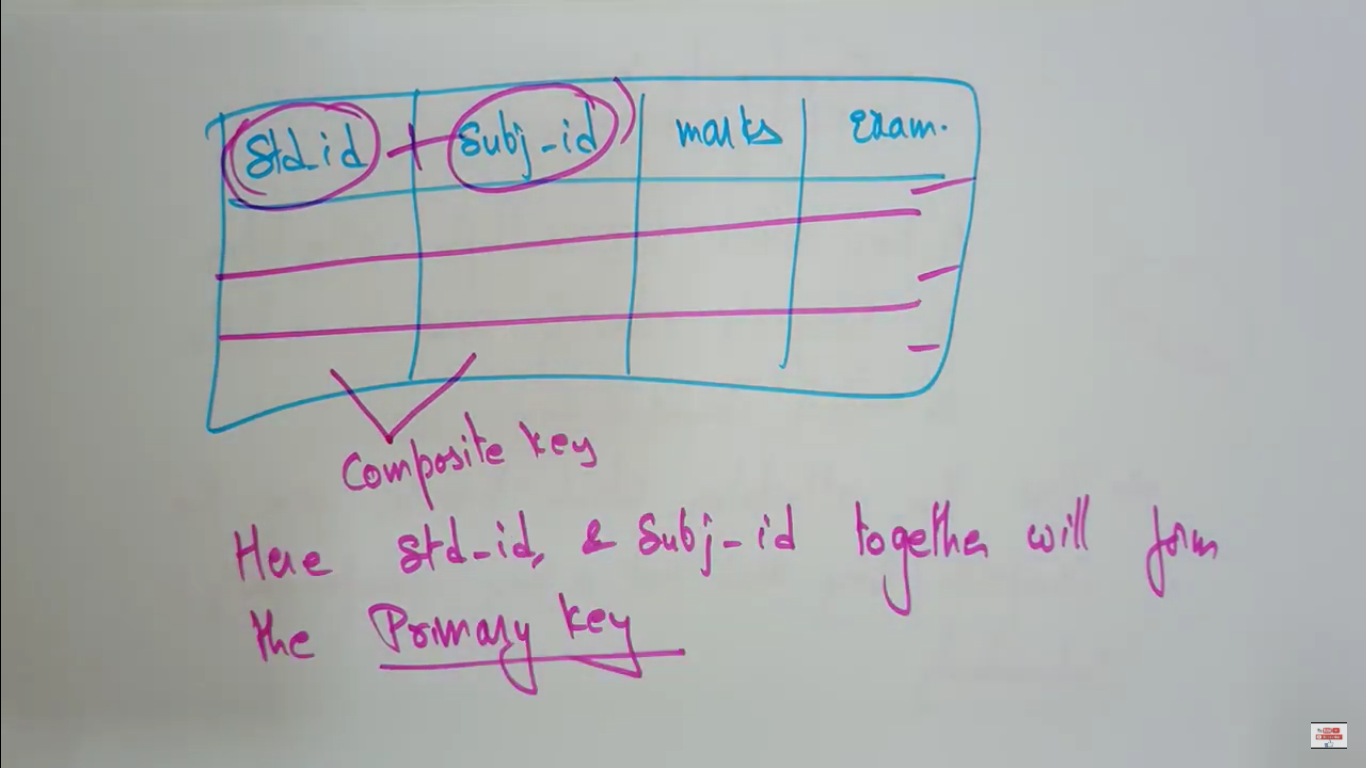 Std_id + Subj_id marks Exam.
Composite key
Here Std_id, & Subj_id together will form
the Primary key